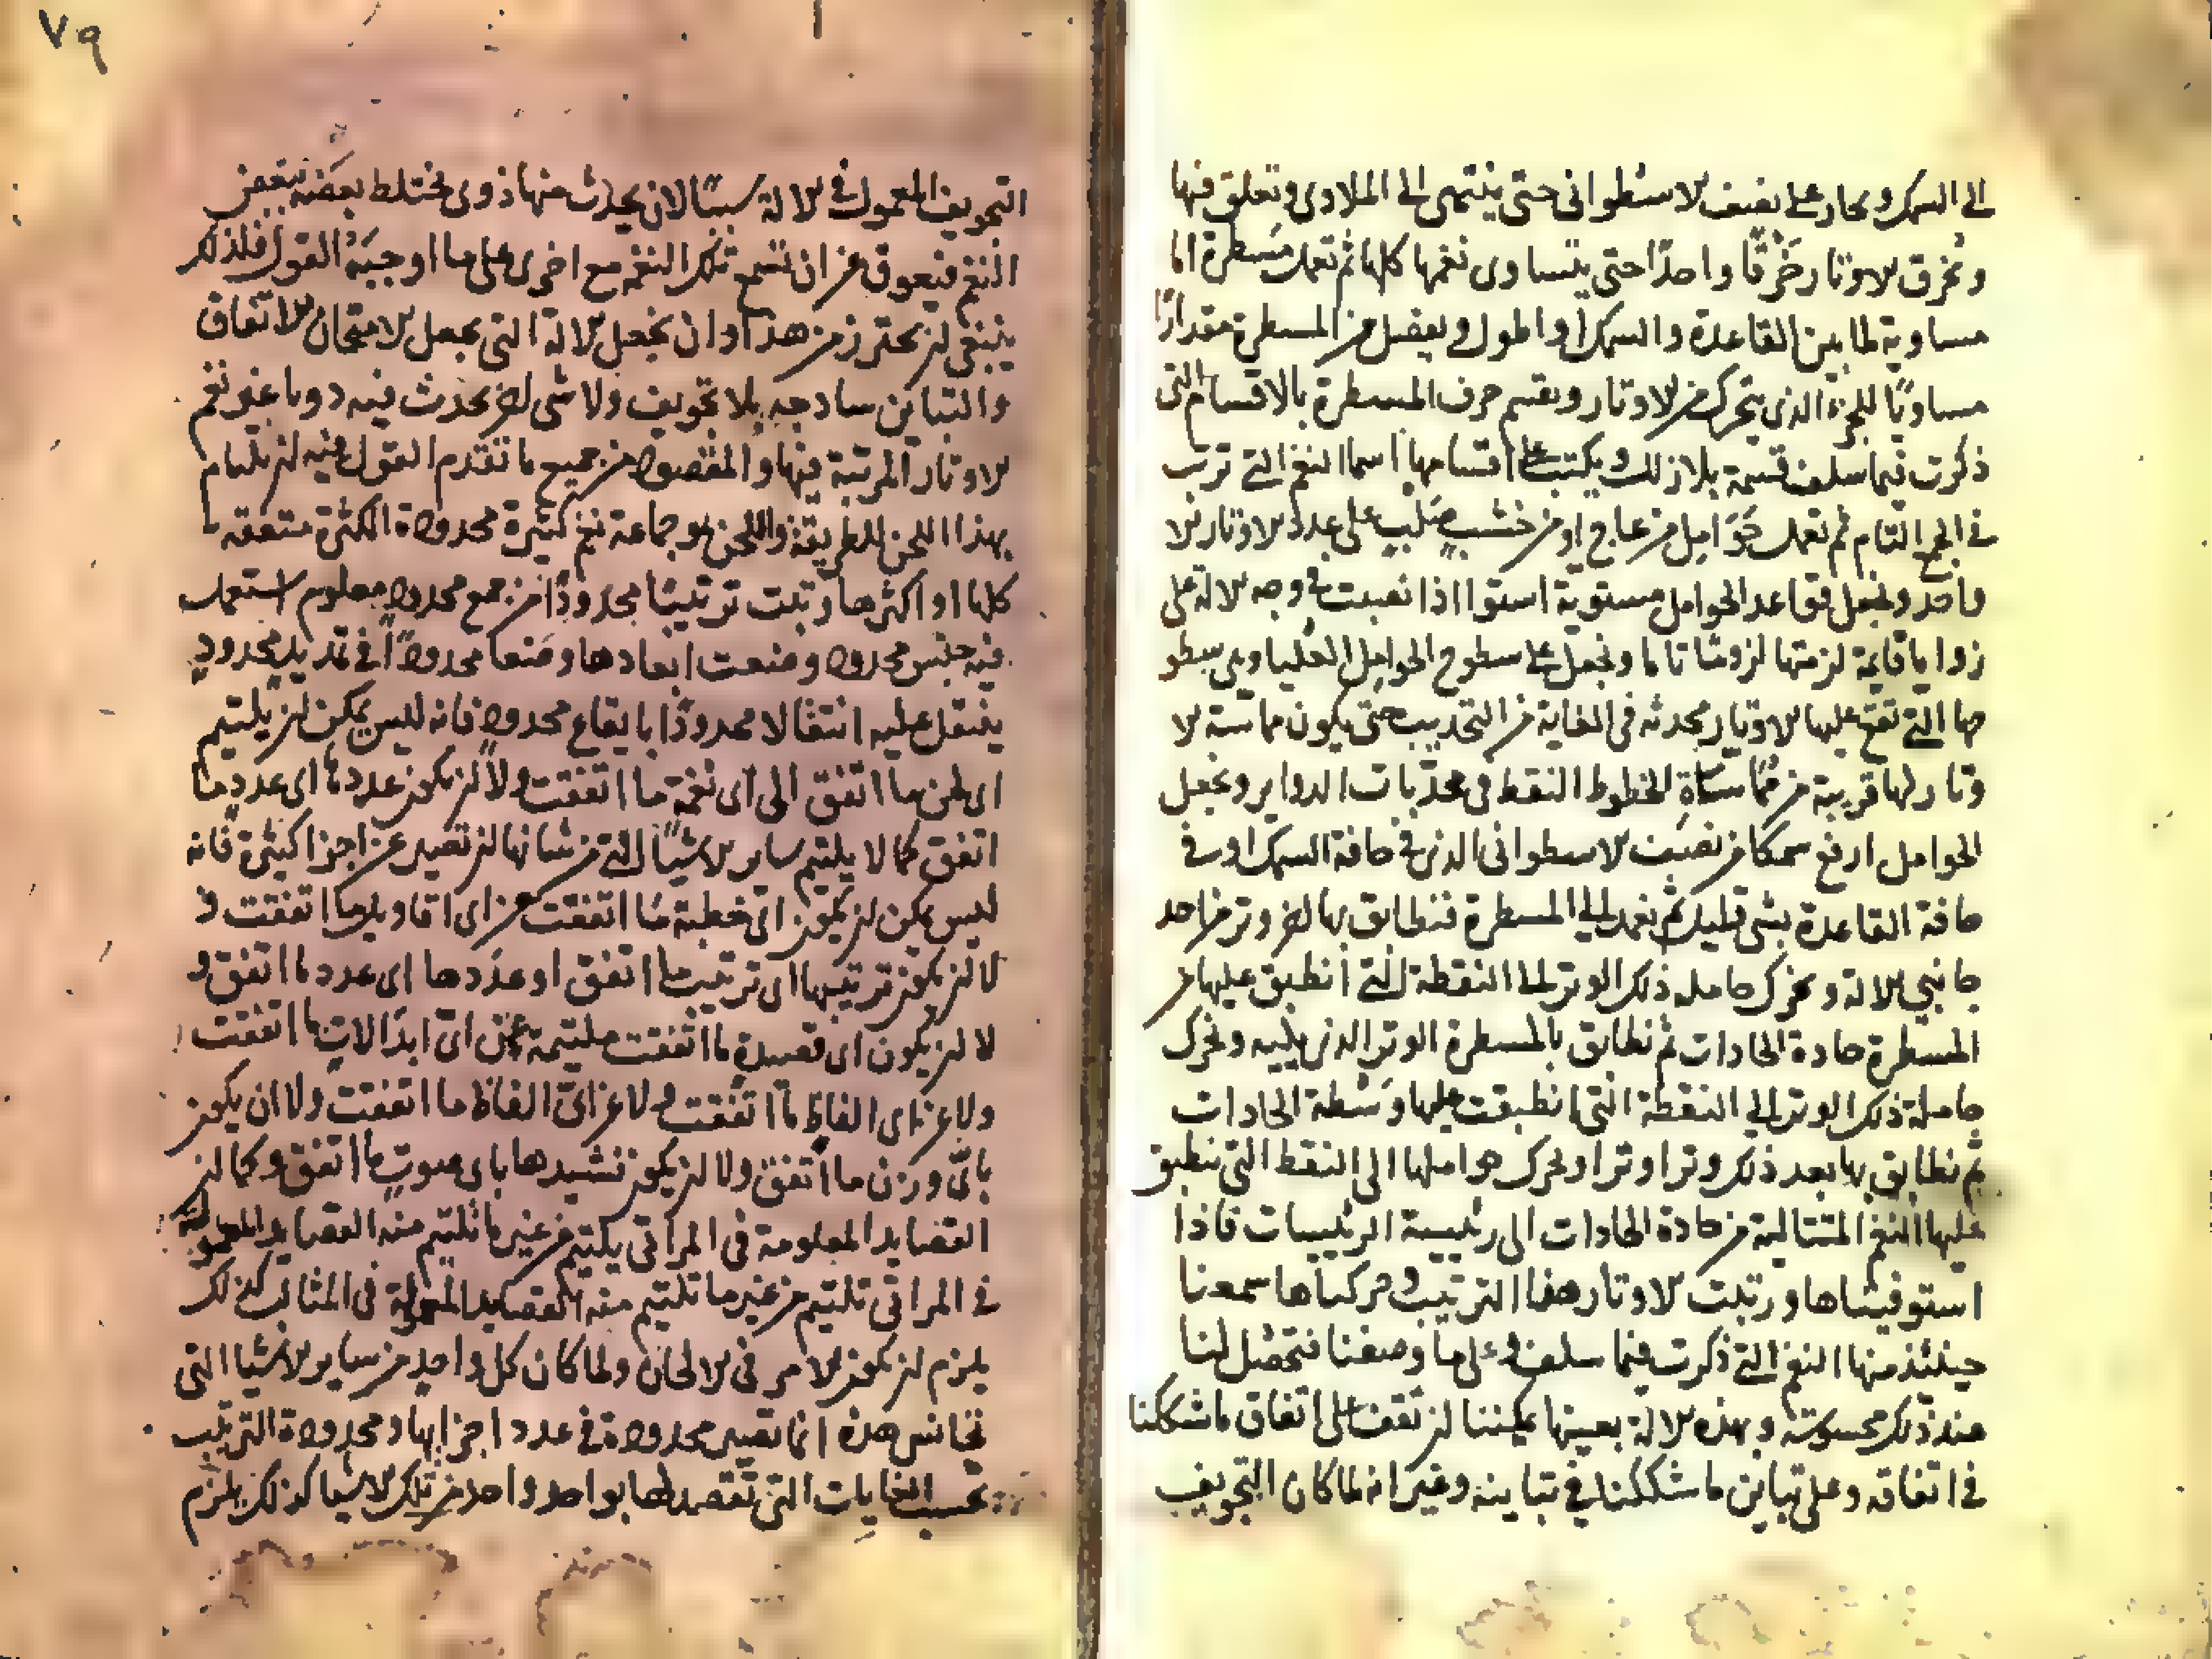 الى السمك و يحاز على نصف الاسطوانى حتى ينتهى الى الملاوى وتعلق فيها
وتحزق الاوتار حزقا واحدا حتى يتساوى نغمها كلها ثم تعمل مسطرة اما
مساوية لما بين القاعدة والسمك او اطول ويفصل من المسطرة مقدارا
مساويا للجزء الذى يتحرك من الاوتار ويقسم حرف المسطرة بالاقسام التى
ذكرت فيما سلف قسمة بلا زلل ويكتب على اقسامها اسما النغم التى ترتب
فى الجمع التام ثم تعمل حوامل من عاج او من خشب صلب على عدد الاوتار الا
واحد ونجعل قواعد الحوامل مستوية استوا اذا نصبت فى وجه الالة على
زوايا قايمة لزمتها لزوما تاما ونجعل على سطوح الحوامل العليا وهى سطو
حها التى تقع عليها الاوتار محدثه فى الغاية من التحديب حتى يكون مماسة الا
وتار لها قريبة من مماسة الخطوط النقط فى محدبات الدواير ونجعل
الحوامل ارفع سمكا من نصف الاسطوانى الذى فى حافة السمك او فى
حافة القاعدة بشى قليل ثم نعمد الى المسطرة فنطابق بها اخر وتر من احد
جانبى الالة ونحرك حاملة ذلك الوتر الى النقطة التى انطبق عليها من
المسطرة حادة الحادات ثم نطابق بالمسطرة الوتر الذى يليه ونحرك
حاملة ذلك الوتر الى النقطة التى انطبقت عليها وسطة الحادات
ثم نطابق بها بعد ذلك وترا وترا ونحرك حواملها الى النقط التى تنطبق
عليها النغم المتتالية من حادة الحادات الى رئيسة الرئيسات فاذا
استوفيناها ورتبت الاوتار هذا الترتيب وحركناها سمعنا
حينئذ منها النغم التى ذكرت فيما سلف وعلى ما وصفنا فتحصل لنا
عند ذلك محسوسة وبهذه الالة بعينها يمكننا ان نقف على اتفاق ما شككنا
فى اتفاقه وعلى تباين ما شككنا فى تباينه وغير انه لما كان التجويف
٧٩
التجويف المعمول فى الالة سببا لان يحدث منها دوى مختلط بعضه ببعض
النغم فيعوق عن ان تسمع تلك النغم مع اخرى على ما اوجبه القول فلذلك
ينبغى ان يحترز من هذا وان نجعل الالة التى نجعل لامتحان الاتفاق
والتباين ساذجه بلا تجويف ولا شى اخر يحدث فيه دويا غير نغم
الاوتار المرتبة فيها والمقصود من جميع ما تقدم القول فيه ان يلتيام
بهذا اللحن للطريقة واللحن هو جماعة نغم كثيرة محدودة الكثرة متفقة
كلها او اكثرها رتبت ترتيبا محدودا من جمع محدود معلوم استعمل
فيه جنس محدود وضعت ابعادها وضعا محدودا فى تمديد محدود
ينتقل عليه انتقالا محدودا بايقاع محدود فانه ليس يمكن ان يلتيم
اى لحن ما اتفق الى اى نغمة ما اتفقت ولا ان يكون عددها اى عدد ما
اتفق كما لا يلتيم ساير الاشيا التى من شانها ان تصير عن اجزا كثيرة فانه
ليس يمكن ان يكون اى خطبة ما اتفقت عن اى اقاويل ما اتفقت و
لا ان يكون ترتيبها اى ترتيب ما اتفق او عددها اى عدد ما اتفق و
لا ان يكون اى قصيدة ما اتفقت ملتيمة عن اى ابدالات ما اتفقت
ولا عن اى الفاظ ما اتفقت ولا عن اى الفاظ ما اتفقت ولا ان يكون
باى وزن ما اتفق ولا ان يكون نشيدها باى صوت ما اتفق وكما ان
القصايد المعلومة فى المراثى يلتيم من غير ما تلتيم منه القصايد المعمولة
فى المراثى تلتيم من غير ما تلتيم منه القصايد المعمولة فى المثالب كذلك
يلزم ان يكون الامر فى الالحان ولما كان كل واحد من ساير الاشيا التى
تجانس هذه انما تصير محدودة فى عدد اجزايها ومحدودة الترتيب
بحسب الغايات التى تقصد لها بواحد واحد من تلك الاشيا كذلك يلزم